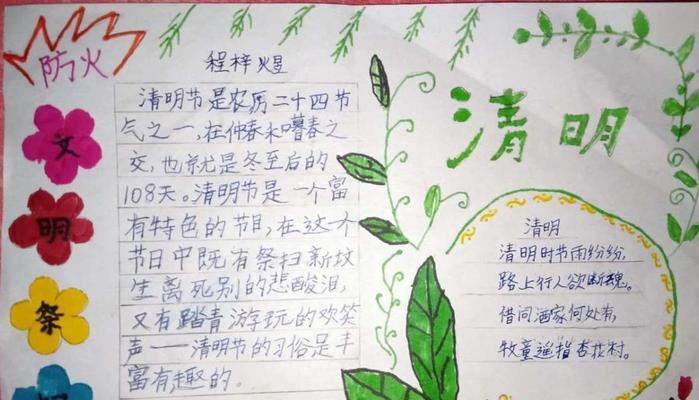 防火
文
明
祭
程梓煜
清明节是农历二十四节
气之一,在仲春与暮春之
交,也就是冬至后的
108天。清明节是一个富
有特色的节日,在这个
节日中既有祭扫新坟
生离死别的悲酸泪,
又有踏青游玩的欢笑
声——清明节的习俗是丰
富有趣的。
清明
清明
清明时节雨纷纷,
路上行人欲断魂。
借问酒家何处有,
牧童遥指杏花村。